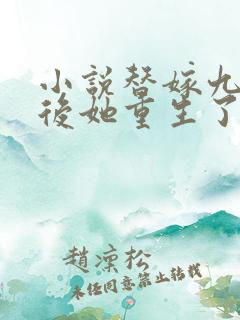 小說替嫁九
後她重生了
趙深松
未經同意禁止轉載